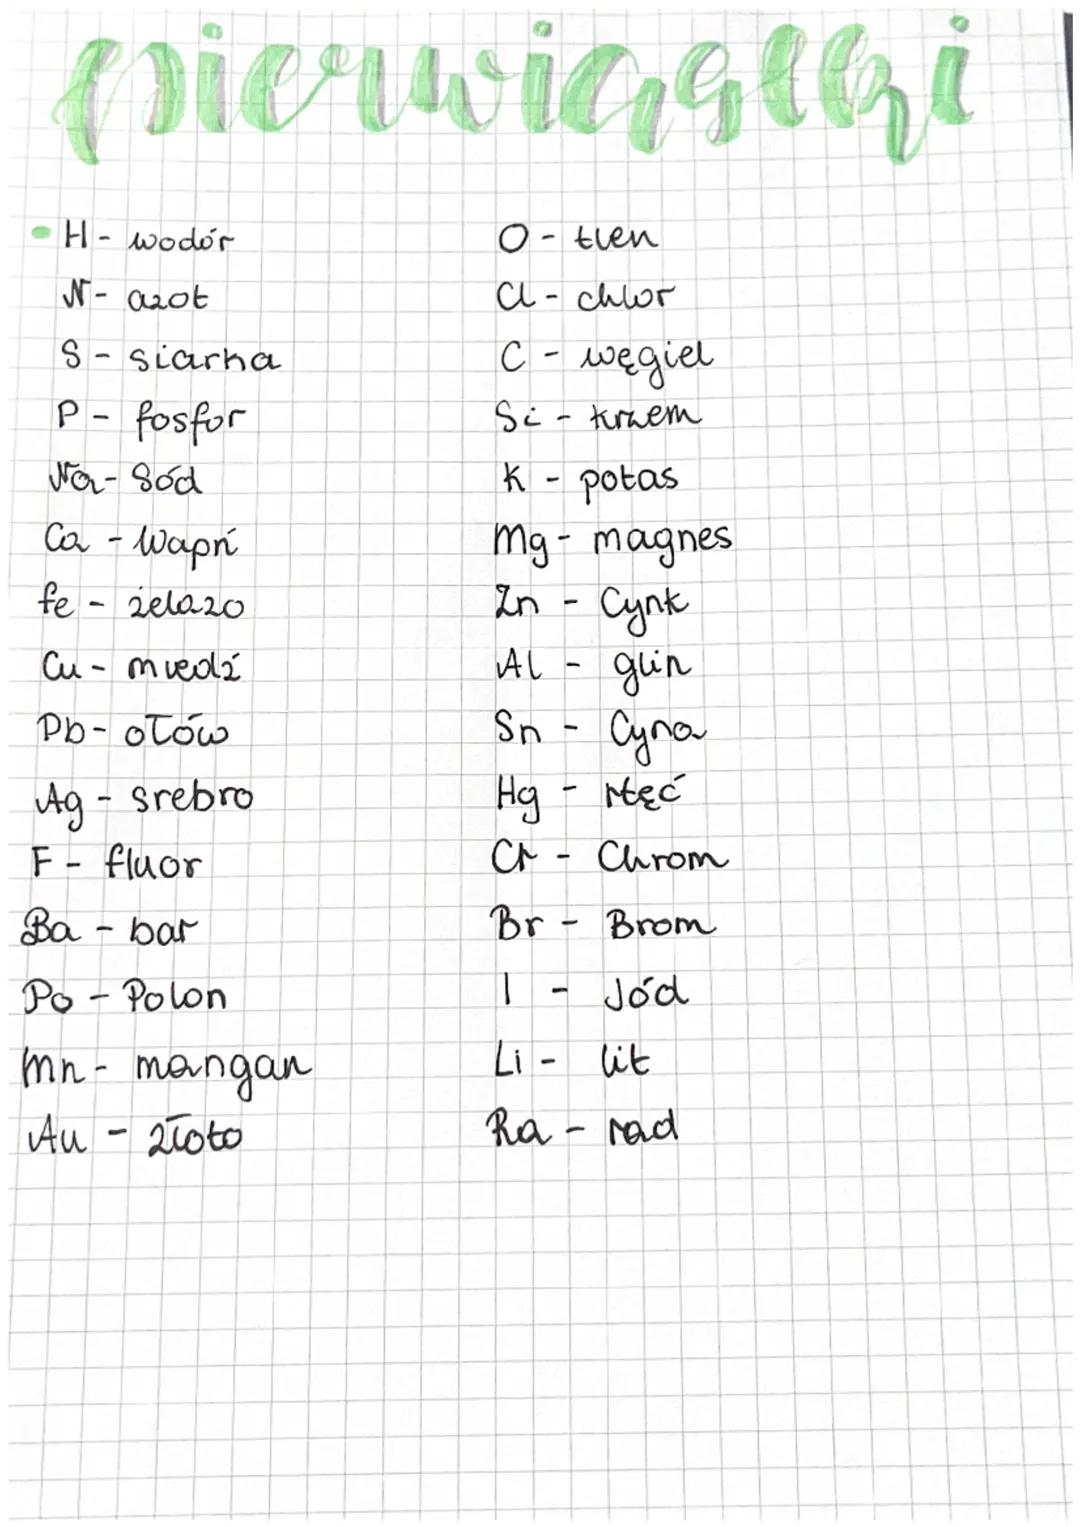 pierwiastki
H - wodór
N - azot
S - siarka
P - fosfor
Na - Sód
Ca - Wapń
fe - żelazo
Cu - miedź
Pb - ołów
Ag - srebro
F - fluor
Ba - bar
Po - Polon
Mn - mangan
Au - złoto
O - tlen
Cl - chlor
C - węgiel
Si - krzem
K - potas
Mg - magnes
Zn - Cynk
Al - glin
Sn - Cyna
Hg - rtęć
Cr - Chrom
Br - Brom
I - Jód
Li - lit
Ra - rad